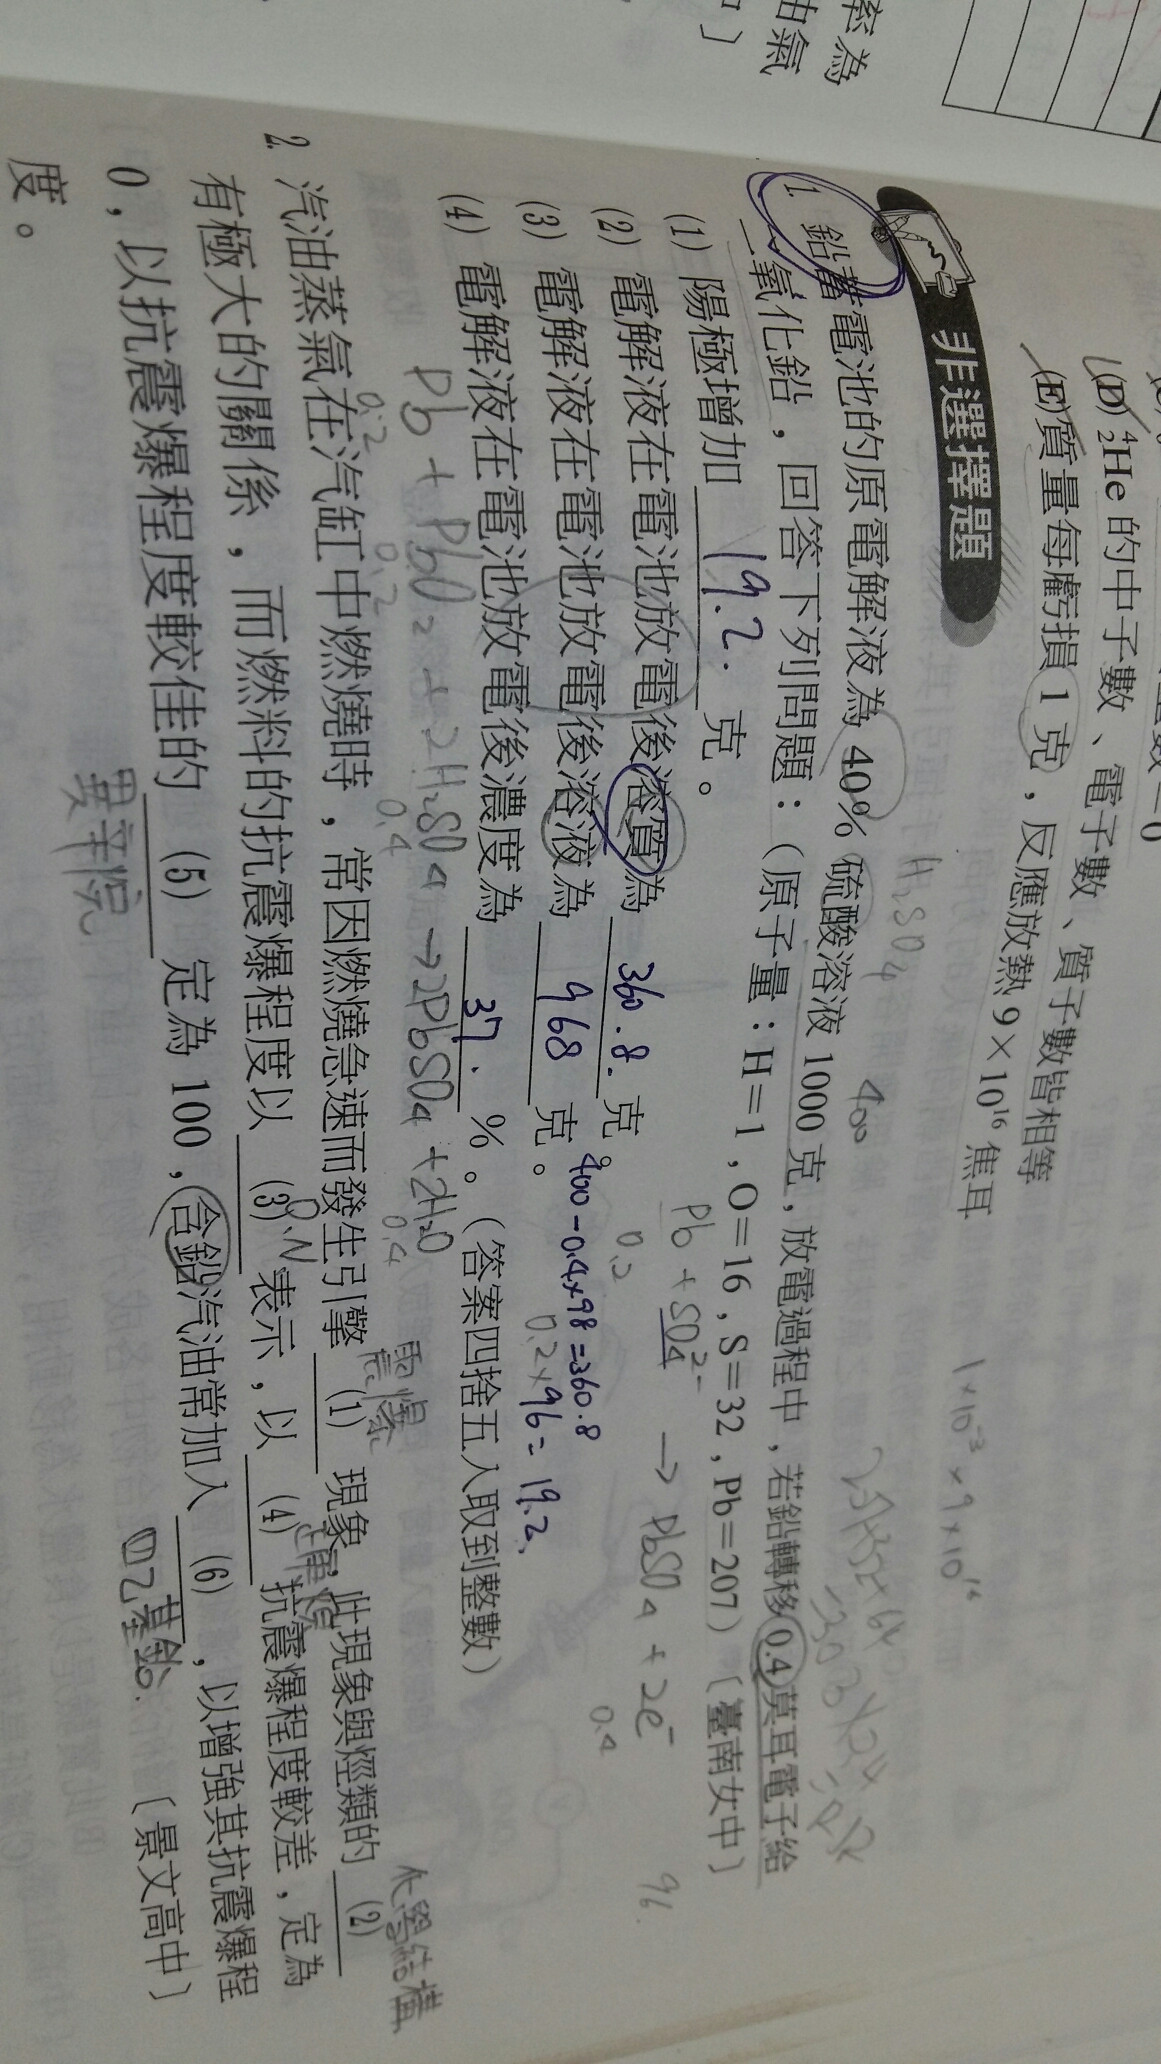 率為
油氣
〕
(D) ⁴₂He 的中子數、電子數、質子數皆相等
(E) 質量每虧損 1 克，反應放熱 9×10¹⁶ 焦耳
1×10⁻³×9×10¹⁶
非選擇題
H₂SO₄
400
1. 鉛蓄電池的原電解液為 40% 硫酸溶液 1000 克，放電過程中，若鉛轉移 0.4 莫耳電子給
二氧化鉛，回答下列問題：（原子量：H=1，O=16，S=32，Pb=207）〔臺南女中〕
Pb + SO₄²⁻ → PbSO₄ + 2e⁻
0.2
0.4
96.
(1) 陽極增加 19.2. 克。
(2) 電解液在電池放電後溶質為 360.8. 克。
400-0.4×98=360.8
(3) 電解液在電池放電後溶液為 968 克。
0.2×96=19.2.
(4) 電解液在電池放電後濃度為 37. %。（答案四捨五入取到整數）
Pb + PbO₂ + 2H₂SO₄ → 2PbSO₄ + 2H₂O
0.2 0.2 0.4 0.4
震爆
化學結構
2. 汽油蒸氣在汽缸中燃燒時，常因燃燒急速而發生引擎 (1) 現象，此現象與烴類的 (2)
有極大的關係，而燃料的抗震爆程度以 (3) 表示，以 (4) 抗震爆程度較差，定為
O.N
正庚烷
0，以抗震爆程度較佳的 (5) 定為 100，含鉛汽油常加入 (6) ，以增強其抗震爆程
異辛烷
四乙基鉛.
度。
〔景文高中〕